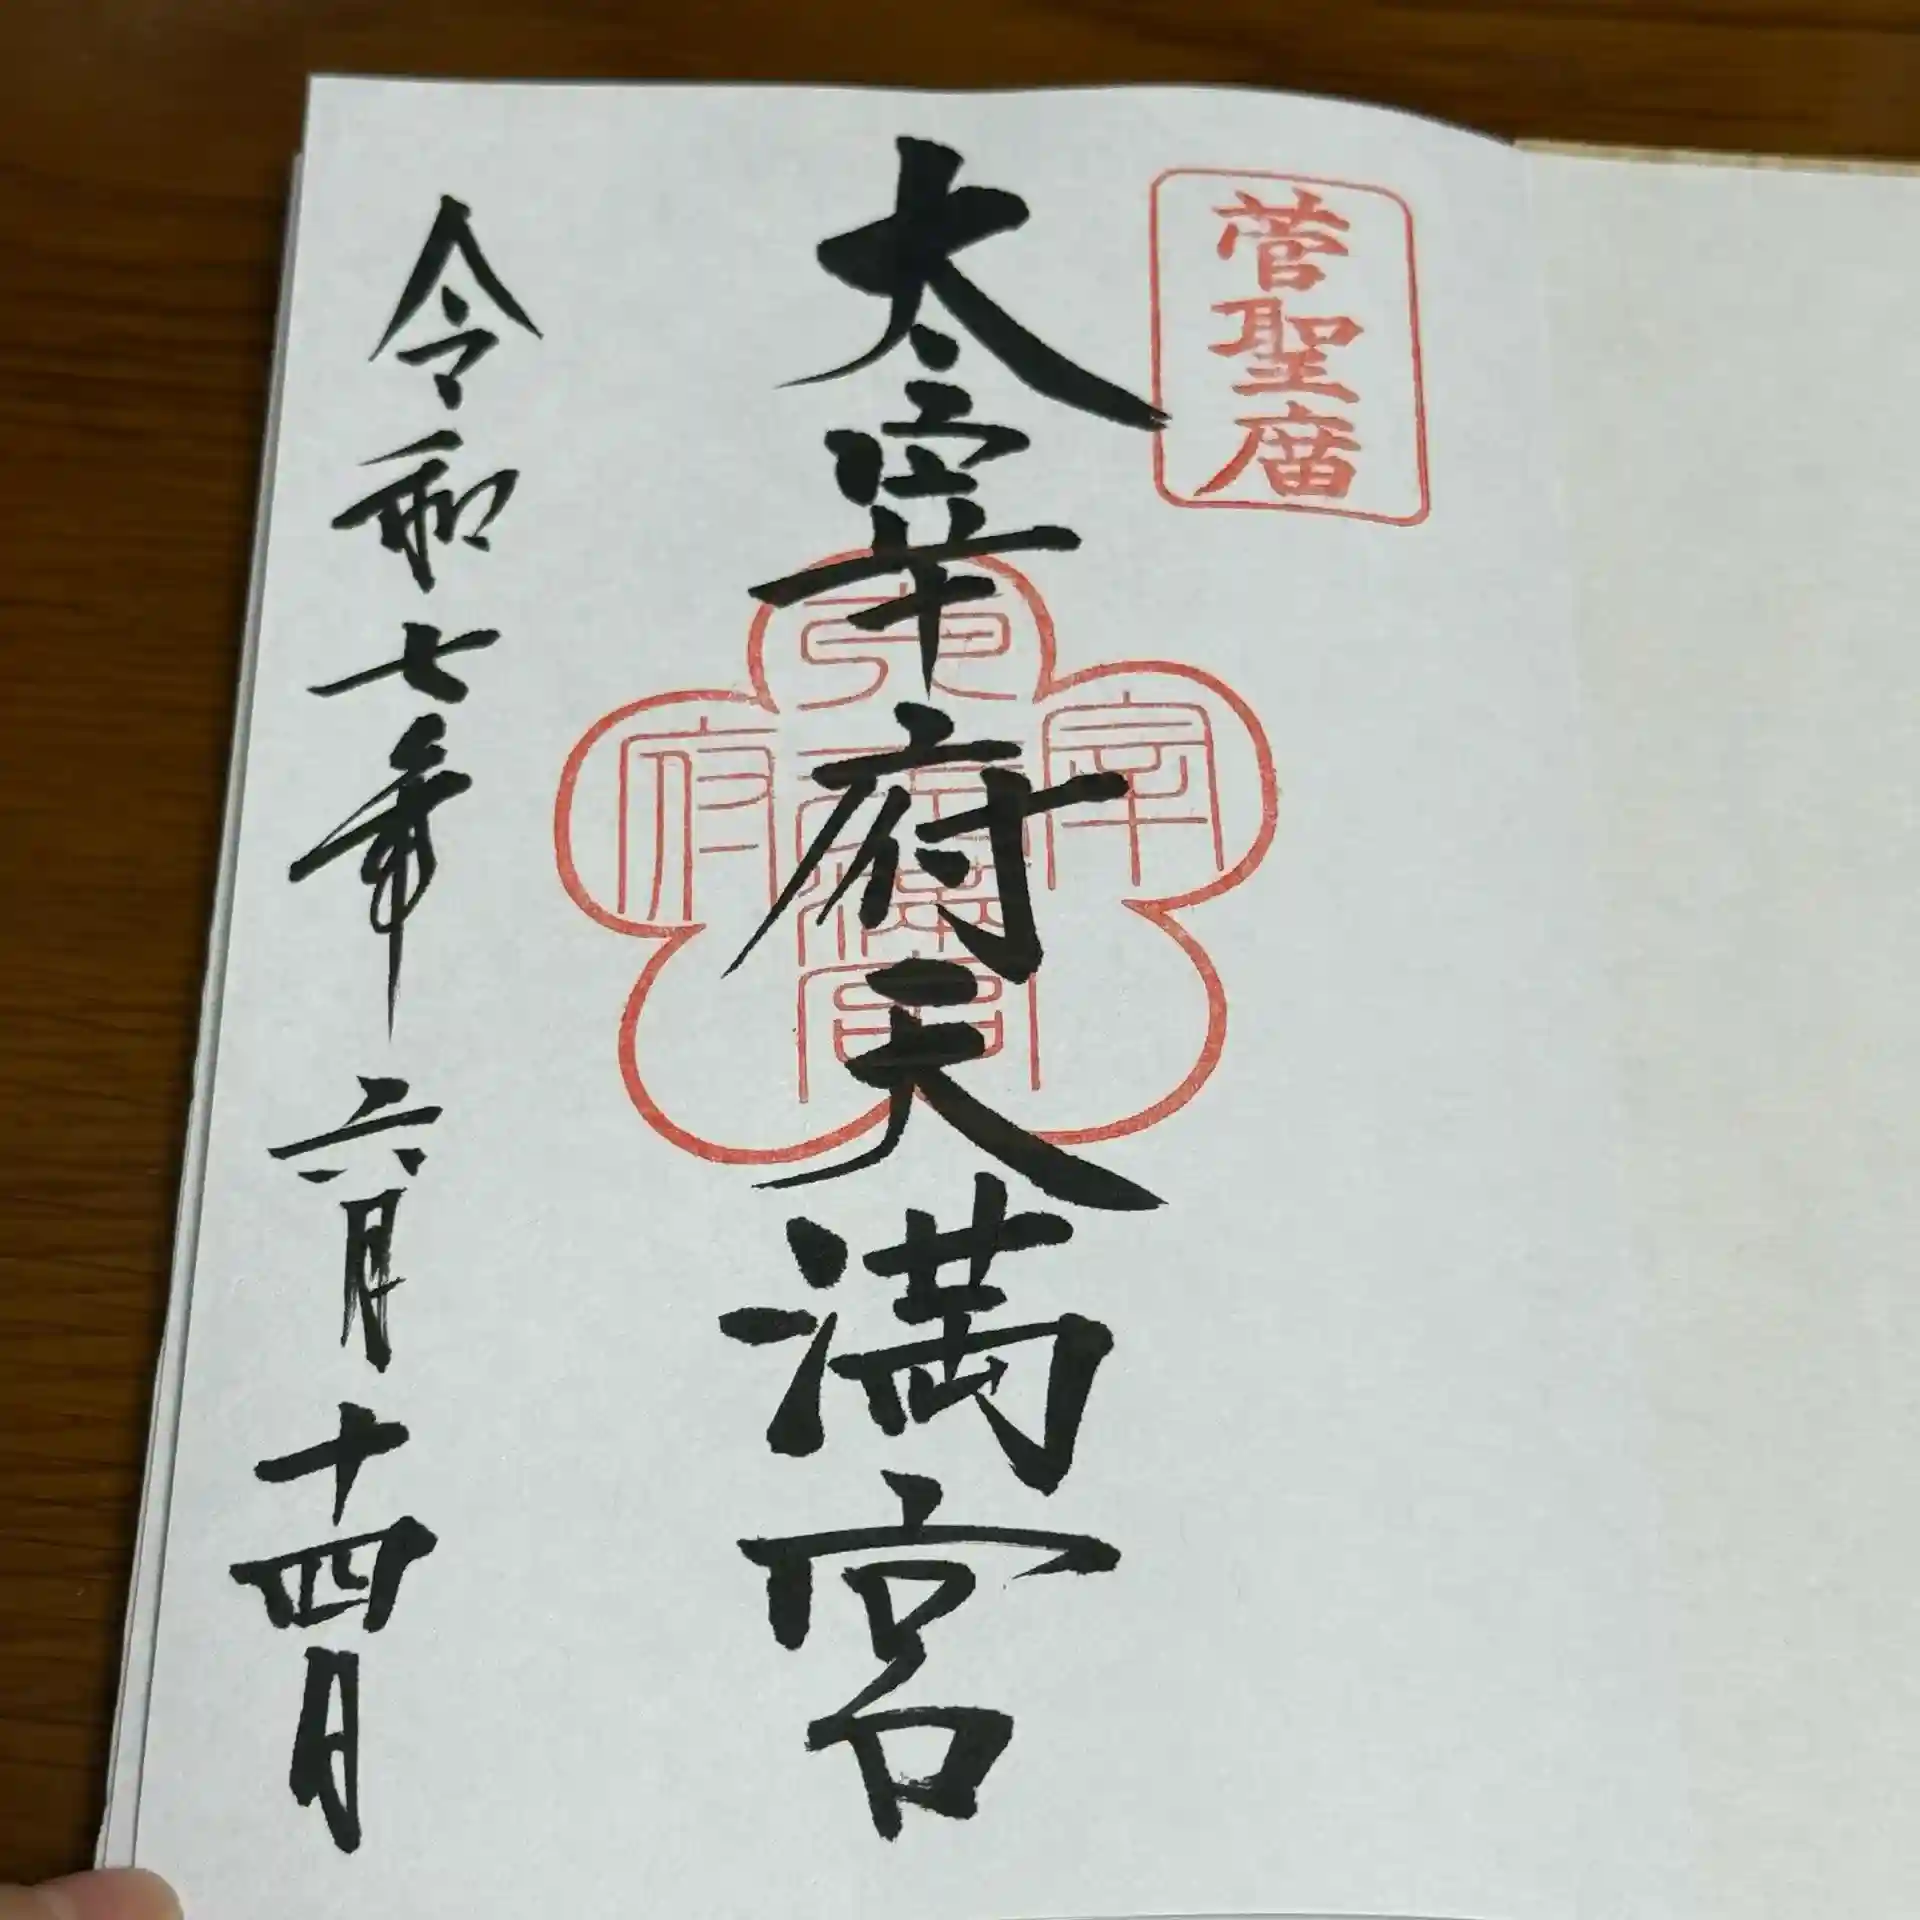 菅聖庿
太宰府天満宮
宰府
天満宮
令和七年六月十四日